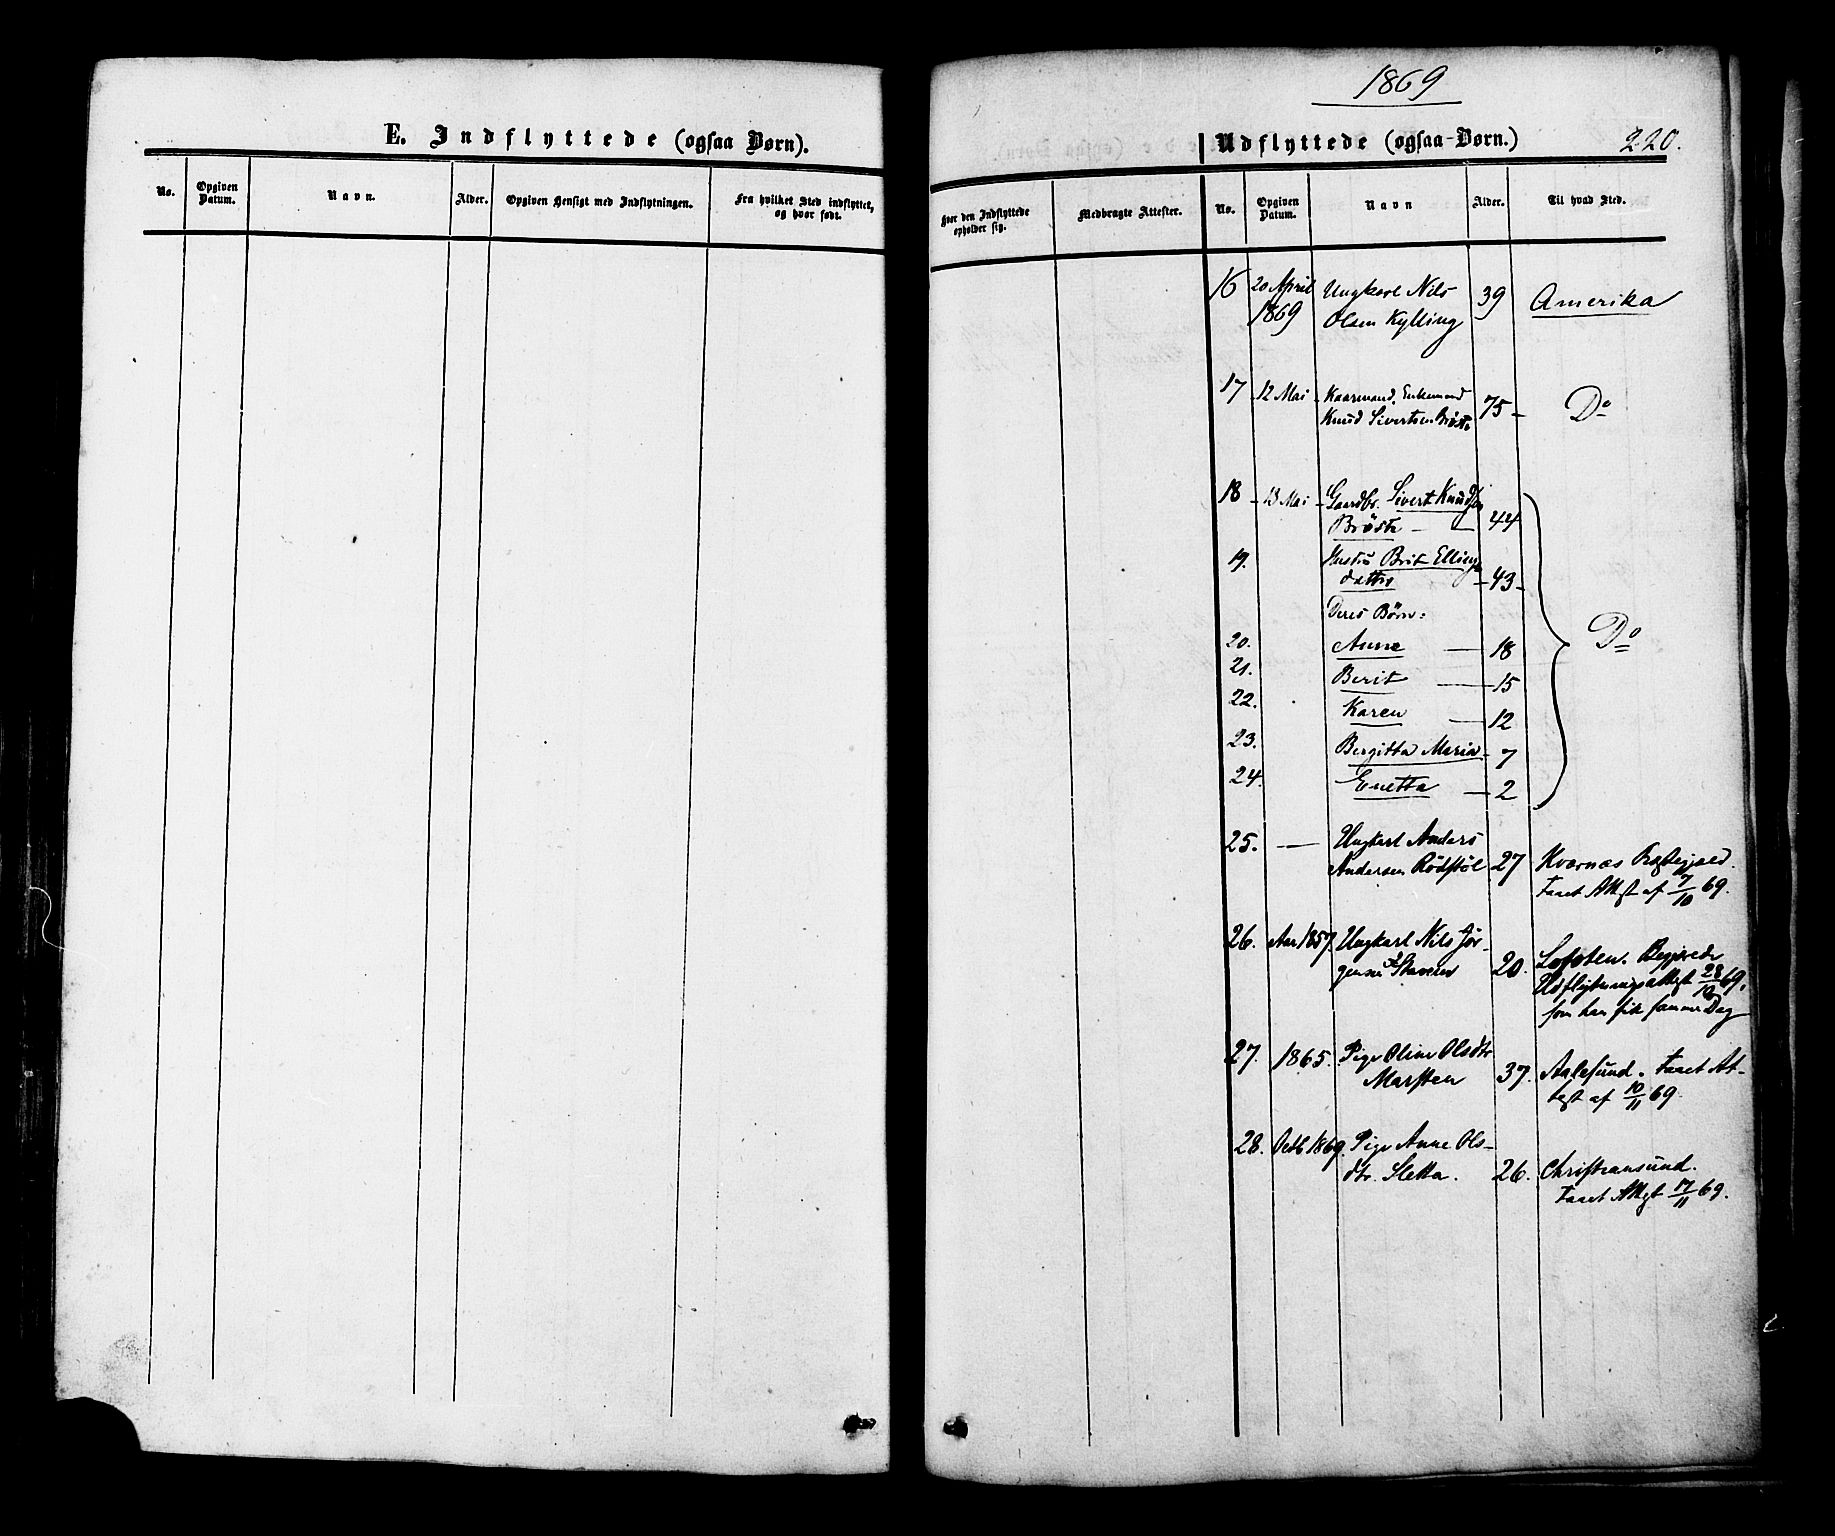 1869
E. Indflyttede (ogsaa Børn).
Udflyttede (ogsaa Børn.)
220.
No.
Opgiven Datum.
Navn.
Alder.
Opgiven Hensigt med Indflytningen.
Fra hvilket Sted indflyttet, og hvor født.
Hvor den Indflyttede opholder sig.
Medbragte Attester.
No.
Opgiven Datum.
Navn
Alder.
Til hvad Sted.
16 20 April Ungkarl Nils 39 Amerika
1869 Olsen Kylling
17 - 12 Mai - Kaarmand. Enkemand 75 - Do
Knud Sivertsen Brøste
18 - 13 Mai - Gaardbr. Sivert Knudsen
Brøste - 44
19. Hustru Brit Ellings
datter - 43 -
Deres Børn: Do
20. Anne - 18
21. Berit - 15
22. Karen - 12
23. Bergitta Maria - 7
24. Enetta - 2
25. - Ungkarl Anders
Andersen Rødstøl 27 Kvernæs Præstegjæld.
Taget Attest af 7/10 69.
26. Aar 1857. Ungkarl Nils Jør-
gensen Stavem 20. Lofoten. Begjærede
Udflytningsattest 28/10 69,
som han fik samme Dag
27. 1865. Pige Oline Olsdtr
Marsten 37. Aalesund. Taget At-
test af 10/11 69.
28. Octb 1869. Pige Anne Ols-
dtr. Sletta. 26. Christiansund.
Taget Attest 17/11 69.